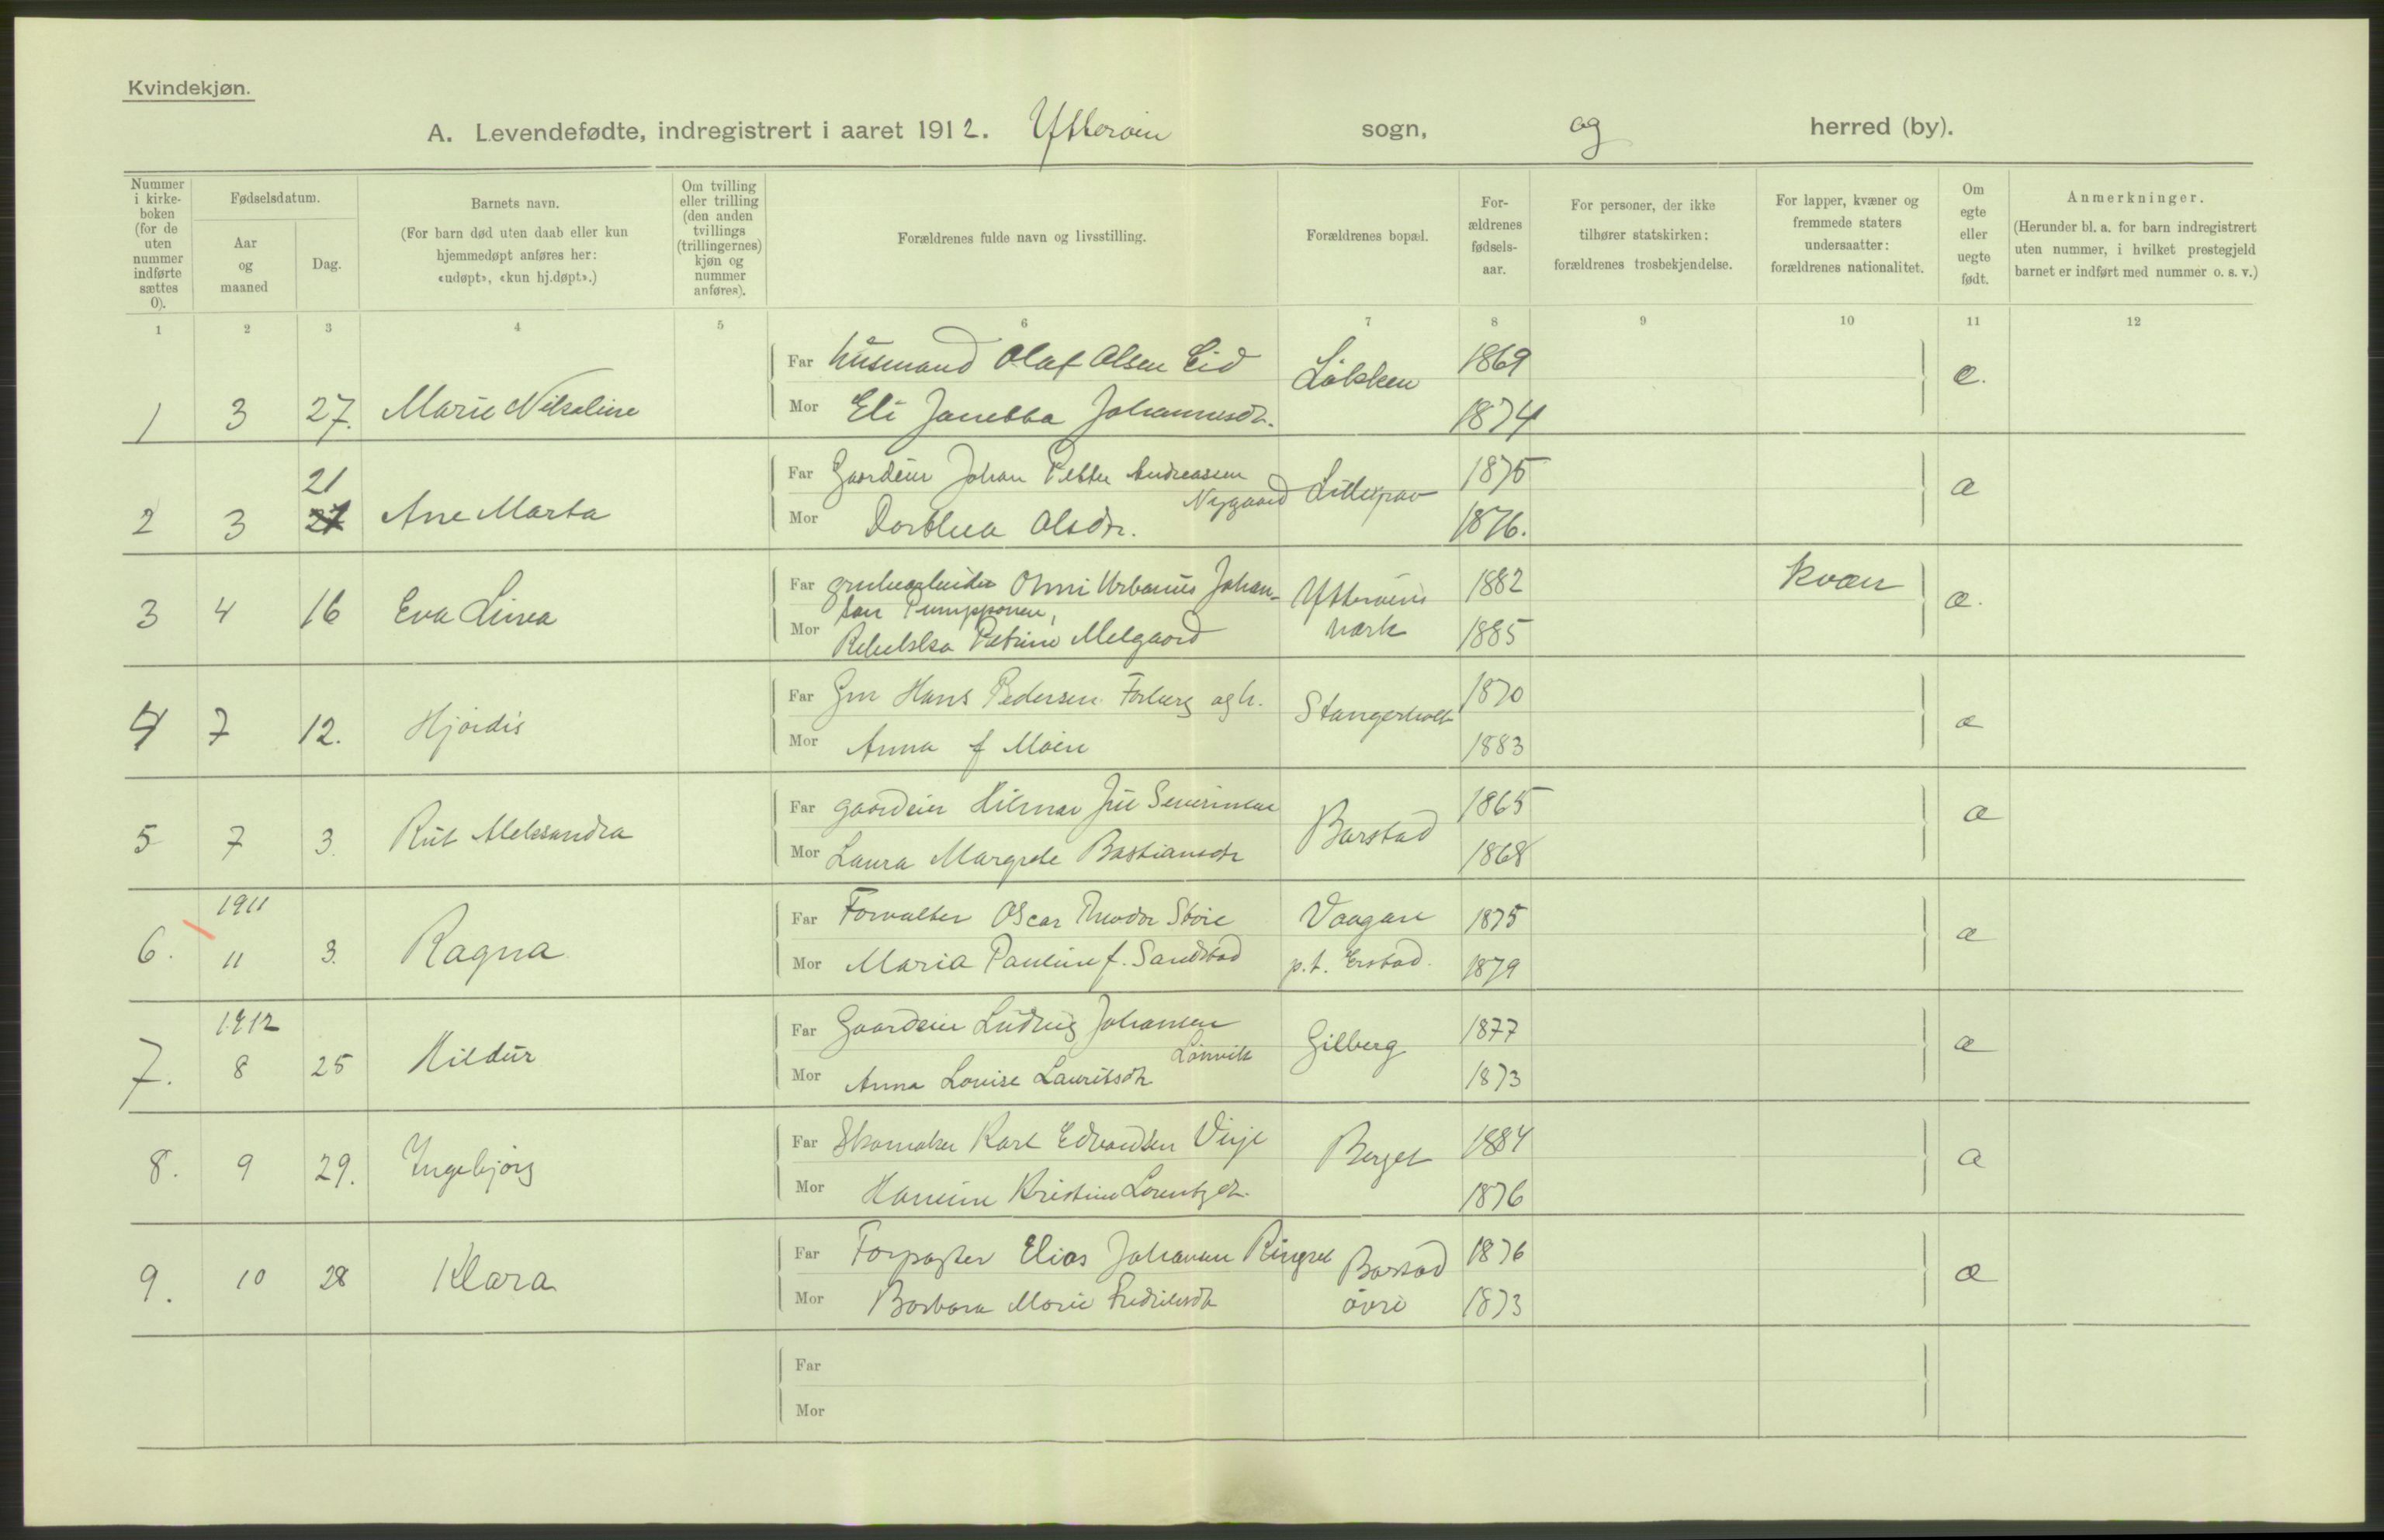 Kvindekjøn.
A. Levendefødte, indregistrert i aaret 1912. Ytterøien sogn, og herred (by).
Nummer i kirkeboken (for de uten nummer indførte sættes 0).
Fødselsdatum.
Aar og maaned
Dag.
Barnets navn.
(For barn død uten daab eller kun hjemmedøpt anføres her: «udøpt», «kun hj.døpt».)
Om tvilling eller trilling (den anden tvillings (trillingernes) kjøn og nummer anføres).
Forældrenes fulde navn og livsstilling.
Forældrenes bopæl.
Forældrenes fødselsaar.
For personer, der ikke tilhører statskirken: forældrenes trosbekjendelse.
For lapper, kvæner og fremmede staters undersaatter: forældrenes nationalitet.
Om egte eller uegte født.
Anmerkninger.
(Herunder bl. a. for barn indregistrert uten nummer, i hvilket prestegjeld barnet er indført med nummer o. s. v.)
1 2 3 4 5 6 7 8 9 10 11 12
Far husmand Olaf Olsen Eid Løkken 1869 e.
1 3 27. Marie Nilsaline
Mor Eli Janetta Johannesdr. 1874
21
Far Gaardeier Johan Petter Andreassen Nygaard 1875 æ
2 3 27 Ane Marta
Mor Dorthea Olsdr. 1876.
Far grubearbeider Onni Urbanus Johansson Pumpponen, Ytterøens værk 1882 kvæn æ.
3 4 16 Eva Linea
Mor Rebekka Petrine Melgaard 1885
Far Gm Hans Pedersen Forberg og h. Stangerholt 1870 æ
4 7 12. Hjørdis
Mor Anna f Moen 1883
Far gaardeier Hilmar Juel Severinsen Barstad 1865 æ
5 7 3. Rut Aleksandra
Mor Laura Margrete Bastiansdr 1868
1911
Far Forvalter Oscar Theodor Støre Vaagan 1875 æ
6. 11 3. Ragna
Mor Maria Pauline f. Sandstad p.t. Erstad. 1879
1912
Far Gaardeier Ludvig Johansen Lønvik Gilberg 1877 æ
7. 8 25 Hildur
Mor Anna Louise Lauritsdr 1873
Far Skomaker Karl Edvardsen Vinje Berget 1884 æ
8. 9 29. Ingebjørg
Mor Hansine Kristine Lorentzdr. 1876
Far Forpagter Elias Johansen Ringsel Barstad øvre 1876 æ
9. 10 28 Klara
Mor Barbara Marie Fredriksdr 1873
Far
Mor